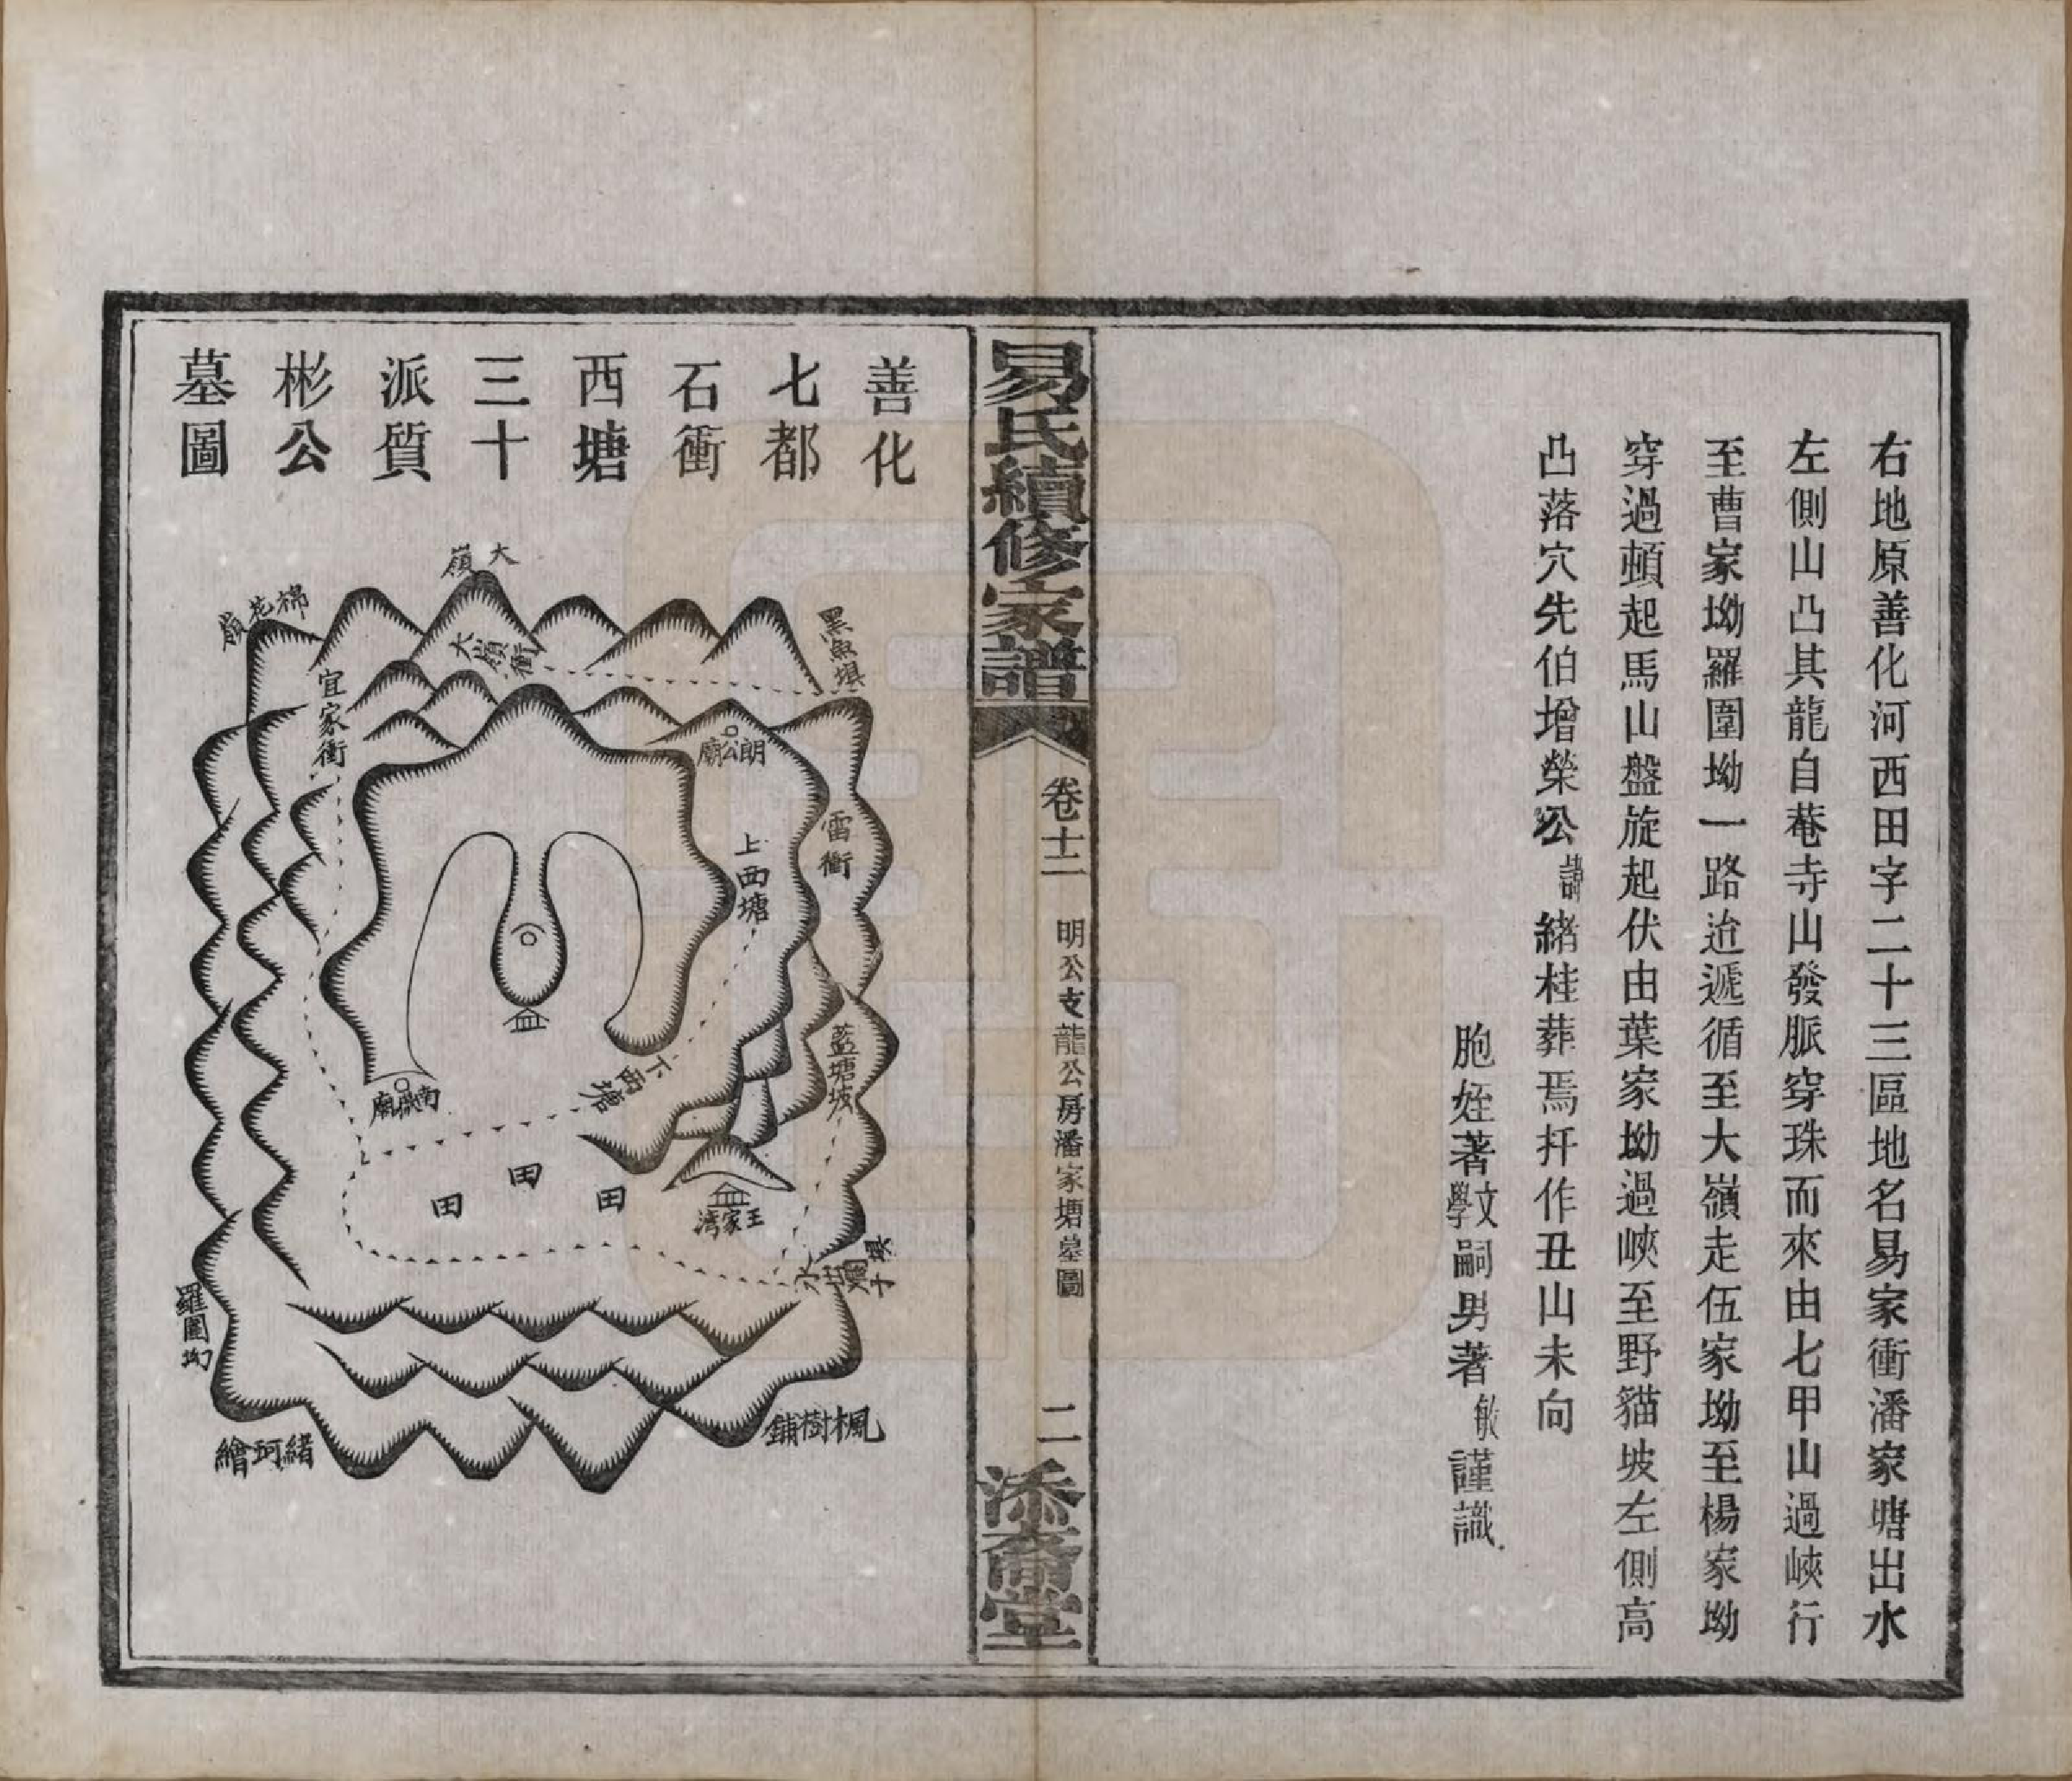 右地原善化河西田字二十三區地名易家衝潘家塘出水
左側山凸其龍自菴寺山發脈穿珠而來由七甲山過峽行
至曹家坳羅圍坳一路迨遞循至大嶺走伍家坳至楊家坳
穿過頓起馬山盤旋起伏由葉家坳過峽至野貓坡左側高
凸落穴先伯增榮公諱緒桂葬焉扦作丑山未向
胞姪著文學嗣男著敏謹識
易氏續修家譜
卷十二
明公支龍公房潘家塘墓圖
二
添裔堂
善化
七都
石衝
西塘
三十
派質
彬公
墓圖
大嶺
棉花嶺
大嶺衝
黑魚塅
宜家衝
朗公廟
雷衝
上西塘
藍塘坡
下西塘
南嶽廟
田
田
田
王家灣
水出
羅圍坳
楓樹鋪
緒珂繪